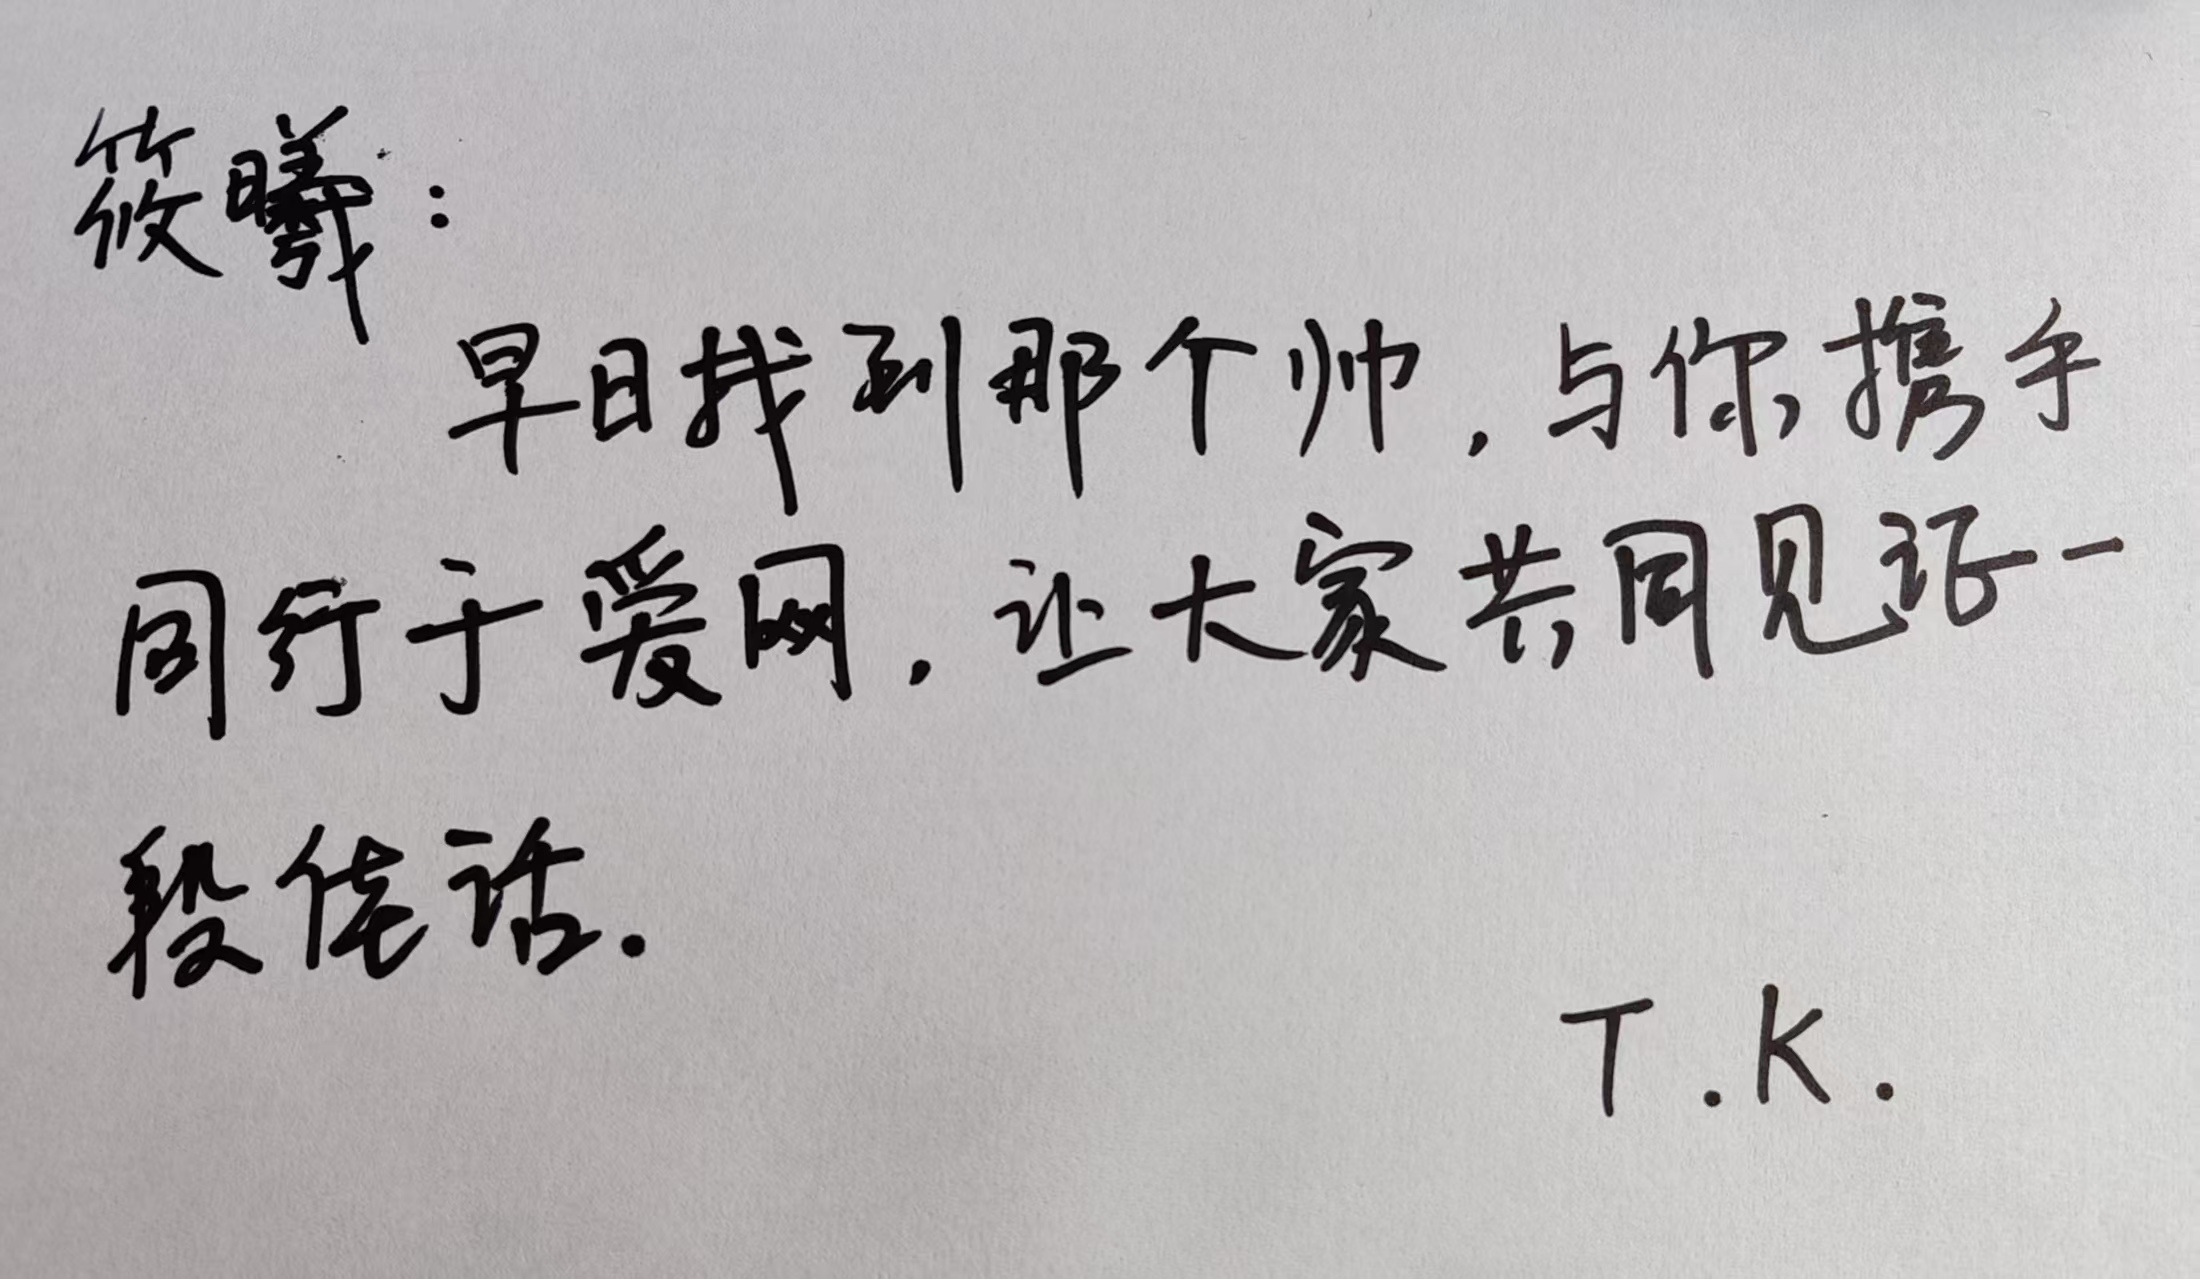 筱曦：
早日找到那个帅，与你携手
同行于爱网，让大家共同见证一
段佳话.
T.K.